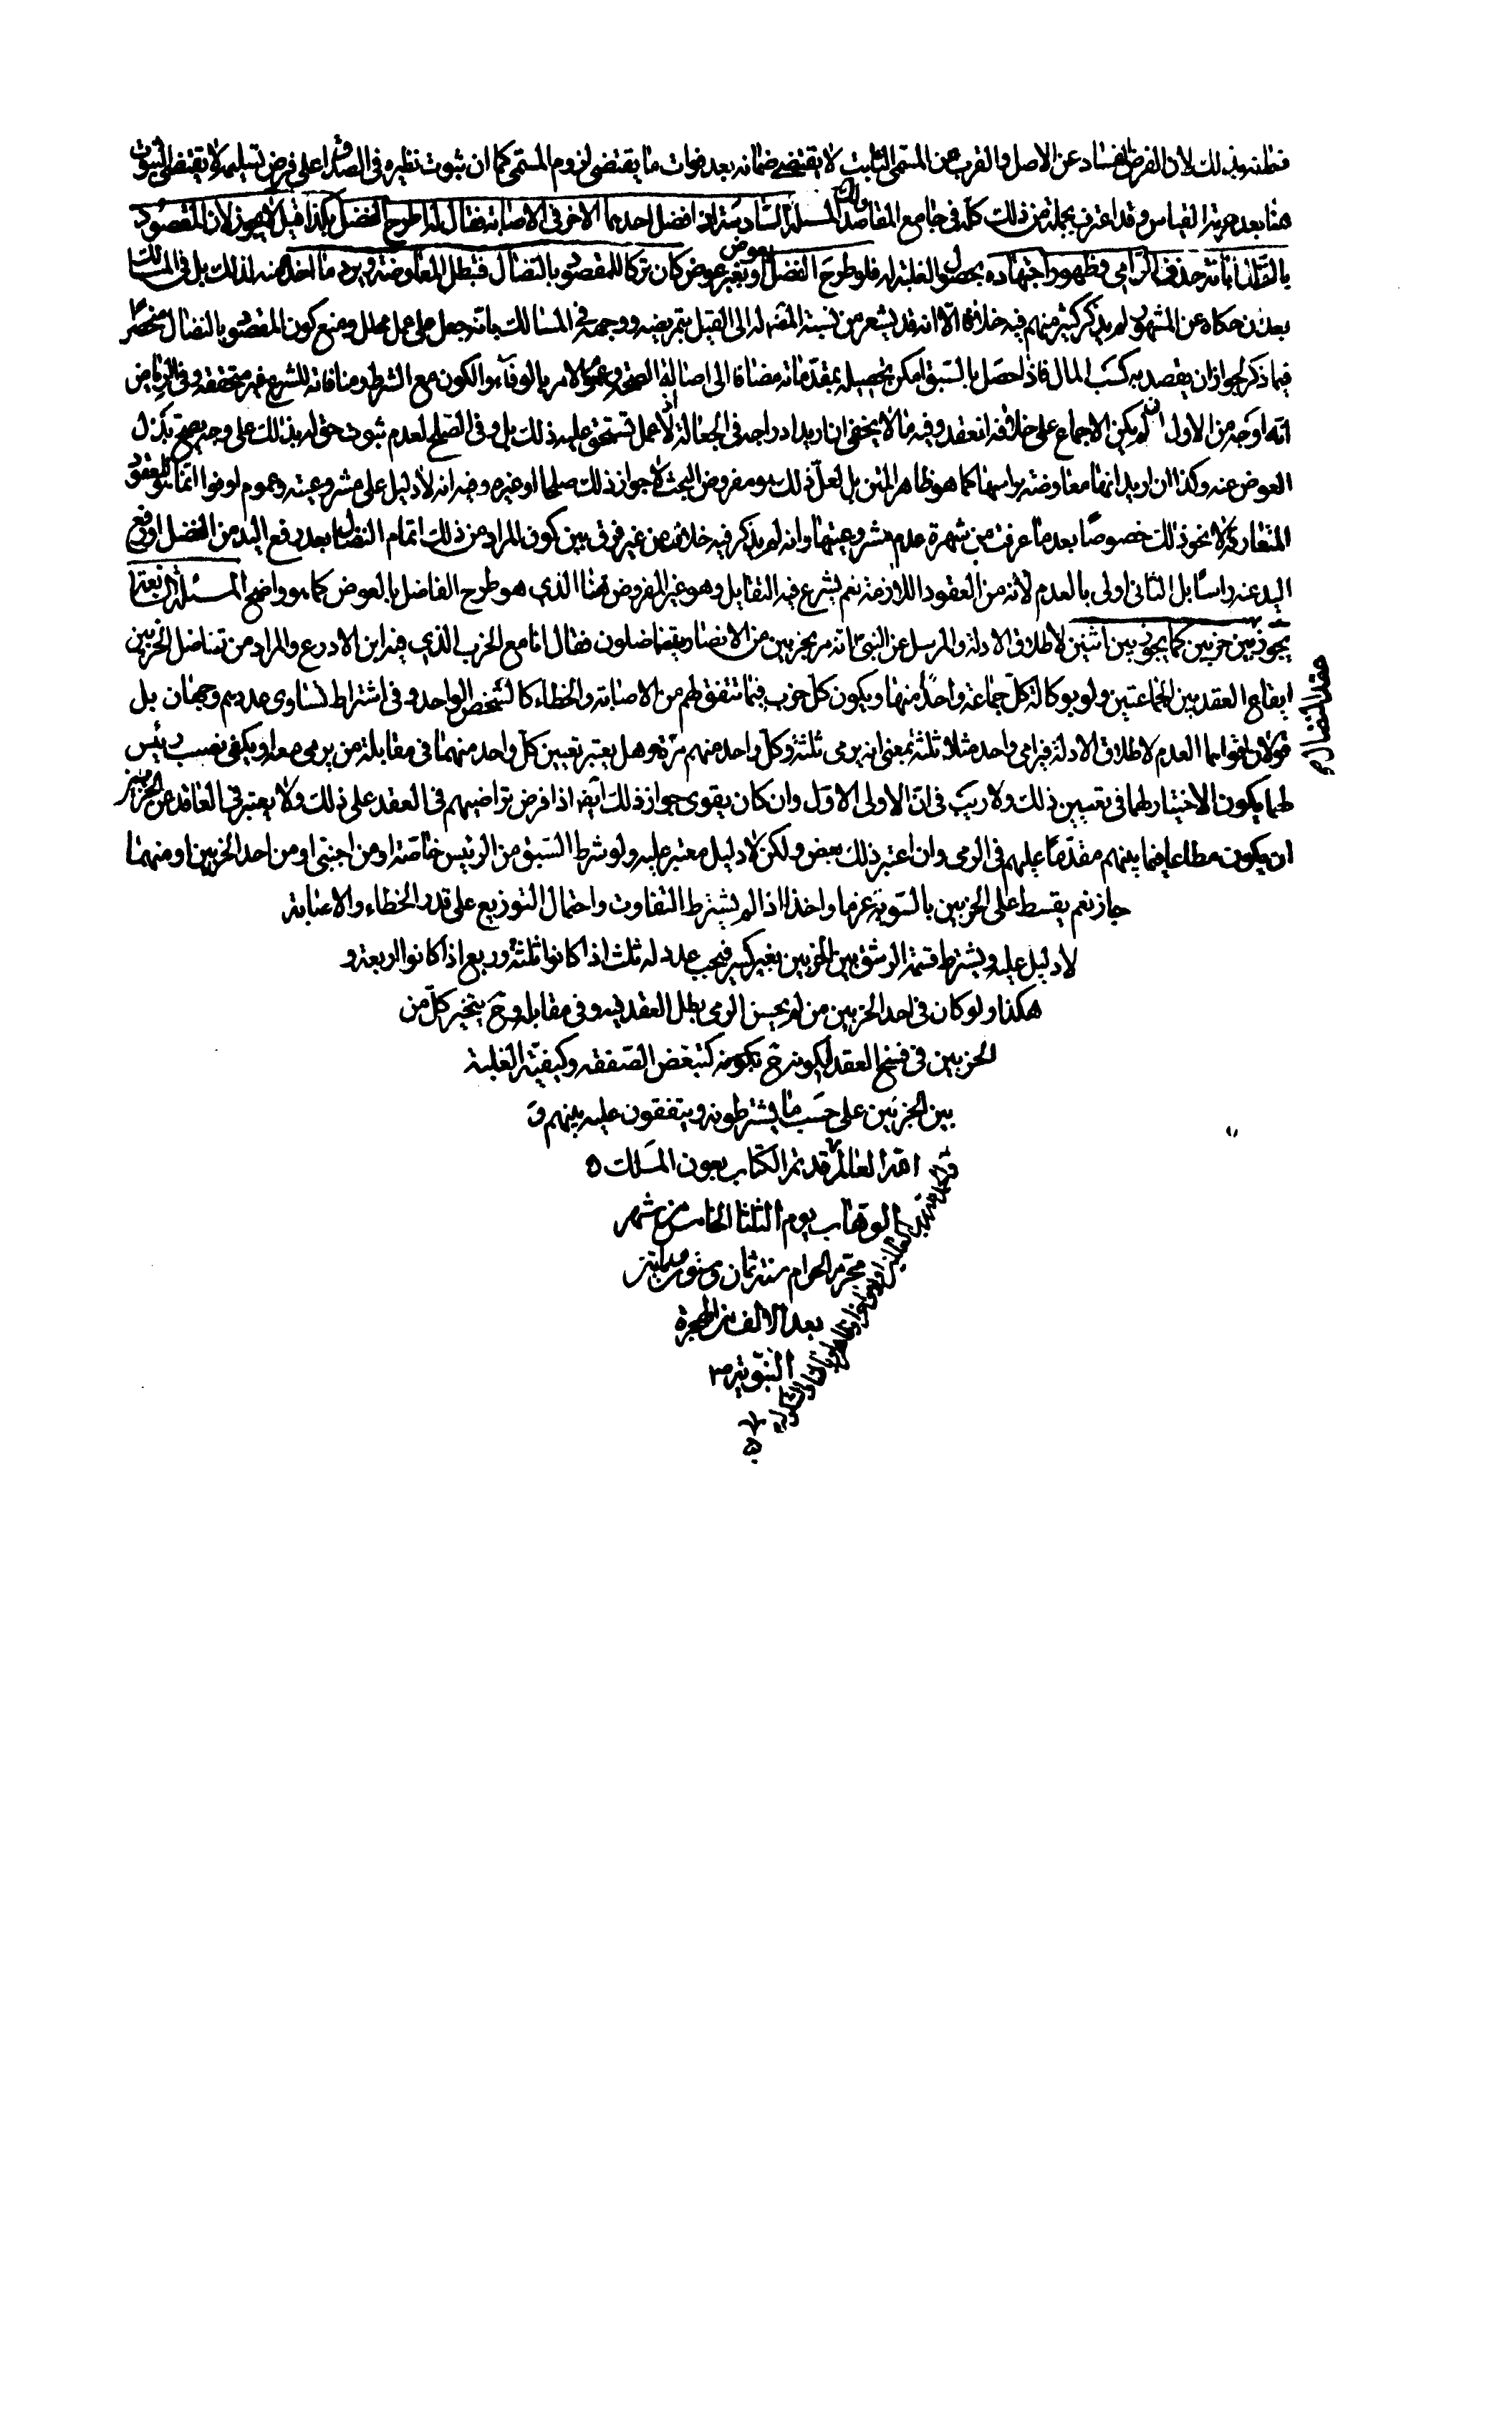 فظلته بذلك لان الفرض الفساد عن الاصل والقرب من المسمى الثابت لا يقتضى ضمانه بعد فوات ما يقتضى لزوم المسمى كما ان ثبوت نظيره فى الصداق على فرض تسليمه لا يقتضى الثبوت
هنا بعد حرمة القياس وقد اعترف بجملة من ذلك كله فى جامع المقاصد والك المسئلة السادسة اذا فضل احدهما الاخر فى الاصابة فقال له اطرح الفضل بكذا قيل لا يجوز لان المقصود
بالنضال ابانة حذق الرامى وظهور اجتهاده بحصول الغلبة له فلو طرح الفضل بعوض او بغير عوض كان تركا للمقصود بالنضال فتبطل المعاوضة ويرد ما اخذ منه لذلك بل فى المسالك
بعد ان حكاه عن المشهور لم يذكر كثير منهم فيه خلافا الا انه قد يشعر من نسبة المصنف له الى القيل بتمريضه ووجهه فى المسالك بانه جعل على عمل محلل ومنع كون المقصود بالنضال منحصرا
فيما ذكر لجواز ان يقصد به كسب المال فاذا حصل بالسبق امكن تحصيله بمقدماته مضافا الى اصالة الصحة وعموم الامر بالوفاء والكون مع الشرط ومنافاته للشرع غير متحققة وفى الرياض
انه اوجه من الاول ان لم يكن الاجماع على خلافه انعقد وفيه ما لا يخفى ان اريد ادراجه فى الجعالة اذ لا عمل تستحق عليه ذلك بل وفى الصلح لعدم ثبوت حق له بذلك على وجه يصح بذل
العوض عنه وكذا ان اريد انها معاوضة براسها كما هو ظاهر المتن بل لعل ذلك هو مفروض البحث لا جواز ذلك صلحا او غيره وفيه انه لا دليل على مشروعيته وعموم اوفوا انما هو للعقود
المتعارفة لا نحو ذلك خصوصا بعد ما عرفت من شهرة عدم مشروعيتها وانه لم يذكر فيه خلاف من غير فرق بين كون المراد من ذلك اتمام النضال بعد رفع اليد من الفضل او رفع
اليد عنه راسا بل الثانى اولى بالعدم لانه من العقود اللازمة نعم يشرع فيه التقايل وهو غير المفروض هنا الذى هو طرح الفاضل بالعوض كما هو واضح المسئلة الرابعة
يجوز بين حزبين كما يجوز بين اثنين لاطلاق الادلة والمرسل عن النبى ص انه مر بحزبين من الانصار يتناضلون فقال انا مع الحزب الذى فيه ابن الادرع والمراد من تناضل الحزبين
ايقاع العقد بين الجماعتين ولو بوكالة كل جماعة واحدا منها ويكون كل حزب فيما تتفق لهم من الاصابة والخطاء كالشخص الواحد وفى اشتراط تساوى عددهم وجهان بل
قولان اقواهما العدم لاطلاق الادلة فيرامى واحد مثلا ثلثة بمعنى انه يرمى ثلثة وكل واحد منهم مرة وهل يعتبر تعيين كل واحد منهما فى مقابلة من يرمى معه او يكفى نصب رئيس
لهما يكون الاختيار لهما فى تعيين ذلك ولا ريب فى ان الاولى الاول وان كان يقوى جواز ذلك ايضا اذا فرض تراضيهم فى العقد على ذلك ولا يعتبر فى العاقد من الحزبين
ان يكون مطاعا فيما بينهم مقدما عليهم فى الرمى وان اعتبر ذلك بعض ولكن لا دليل معتبر عليه ولو شرط السبق من الرئيس خاصة او من اجنبى او من احد الحزبين او منهما
جاز نعم يقسط على الحزبين بالسوية غرما واخذا اذا لم يشترط التفاوت واحتمال التوزيع على قدر الخطاء والاصابة
لا دليل عليه ويشترط قسمة الرشق بين الحزبين بغير كسر فيجب عدد له ثلث اذا كانوا ثلثة وربع اذا كانوا اربعة و
هكذا ولو كان فى احد الحزبين من لم يحسن الرمى بطل العقد فيه وفى مقابله وح يتخير كل من
الحزبين فى فسخ العقد لكونه ح كتبعض الصفقة وكيفية الغلبة
بين الحزبين على حسب ما يشترطونه ويتفقون عليه بينهم و
الله العالم قد تم الكتاب بعون الملك
الوهاب يوم الثلثا الخامس من شهر
محرم الحرام سنة ثمان
بعد الالف من الهجرة
النبوية
عقد النضال